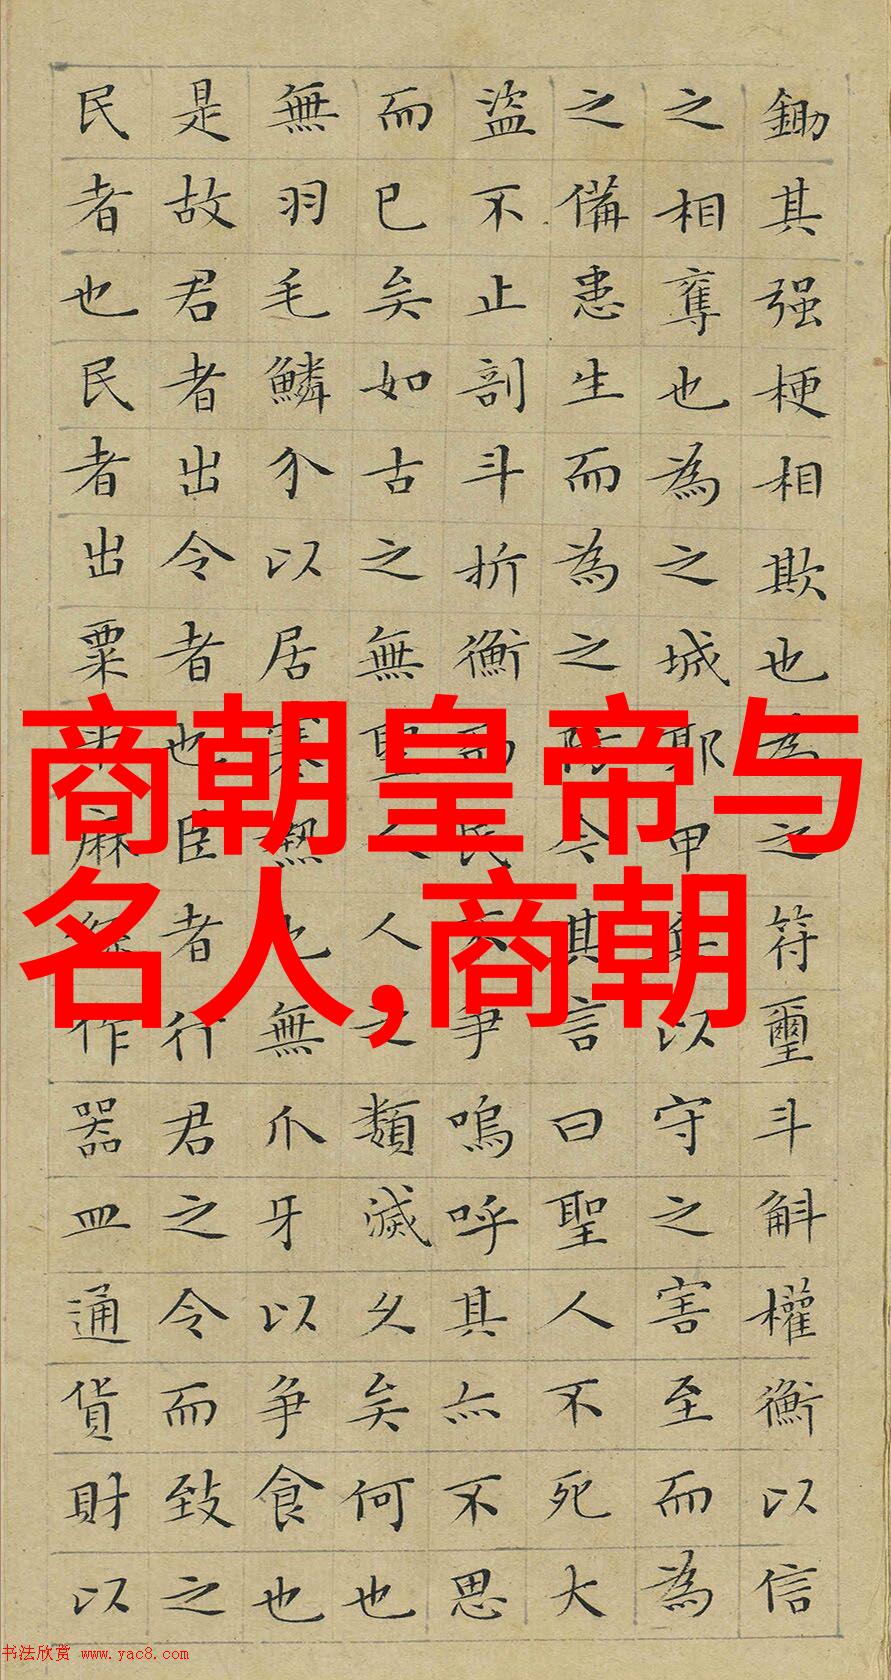 鋤其强梗相欺也為之符璽斗斛權衡以信
之相奪也為之城郭甲兵以守之害至而為
之備患生而為之防今其言曰聖人不死大
盜不止剖斗折衡而民不爭嗚呼其亦不思
而已矣如古之無聖人人之類滅久矣何也
無羽毛鱗介以居寒熱也無爪牙以爭食也
是故君者出令者也臣者行君之令而致之
民者也民者出粟米麻絲作器皿通貨財以
商朝皇帝与
名人,商朝
书法欣赏 www.yac8.com